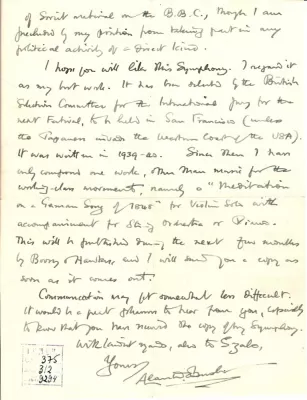 of Soviet material on the B.B.C., though I am
precluded by my position from taking part in any
political activity of a direct kind.
I hope you will like this Symphony. I regard it
as my best work. It has been selected by the British
Selection Committee for the International Jury for the
next Festival, to be held in San Francisco (unless
the Japanese invade the Western Coast of the USA).
It was written in 1939-40. Since then I have
only composed one work, other than music for the
working-class movement, namely a "Meditation
on a German Song of 1848" for Violin Solo with
accompaniment for String Orchestra or Piano.
This will be published during the next few months
by Boosey & Hawkes, and I will send you a copy as
soon as it comes out.
Communication may get somewhat less difficult.
It would be a great pleasure to hear from you, especially
to know that you have received the copy of my Symphony.
With kindest regards, also to Szabo,
Yours,
Alan D. Bush
375
312
3234